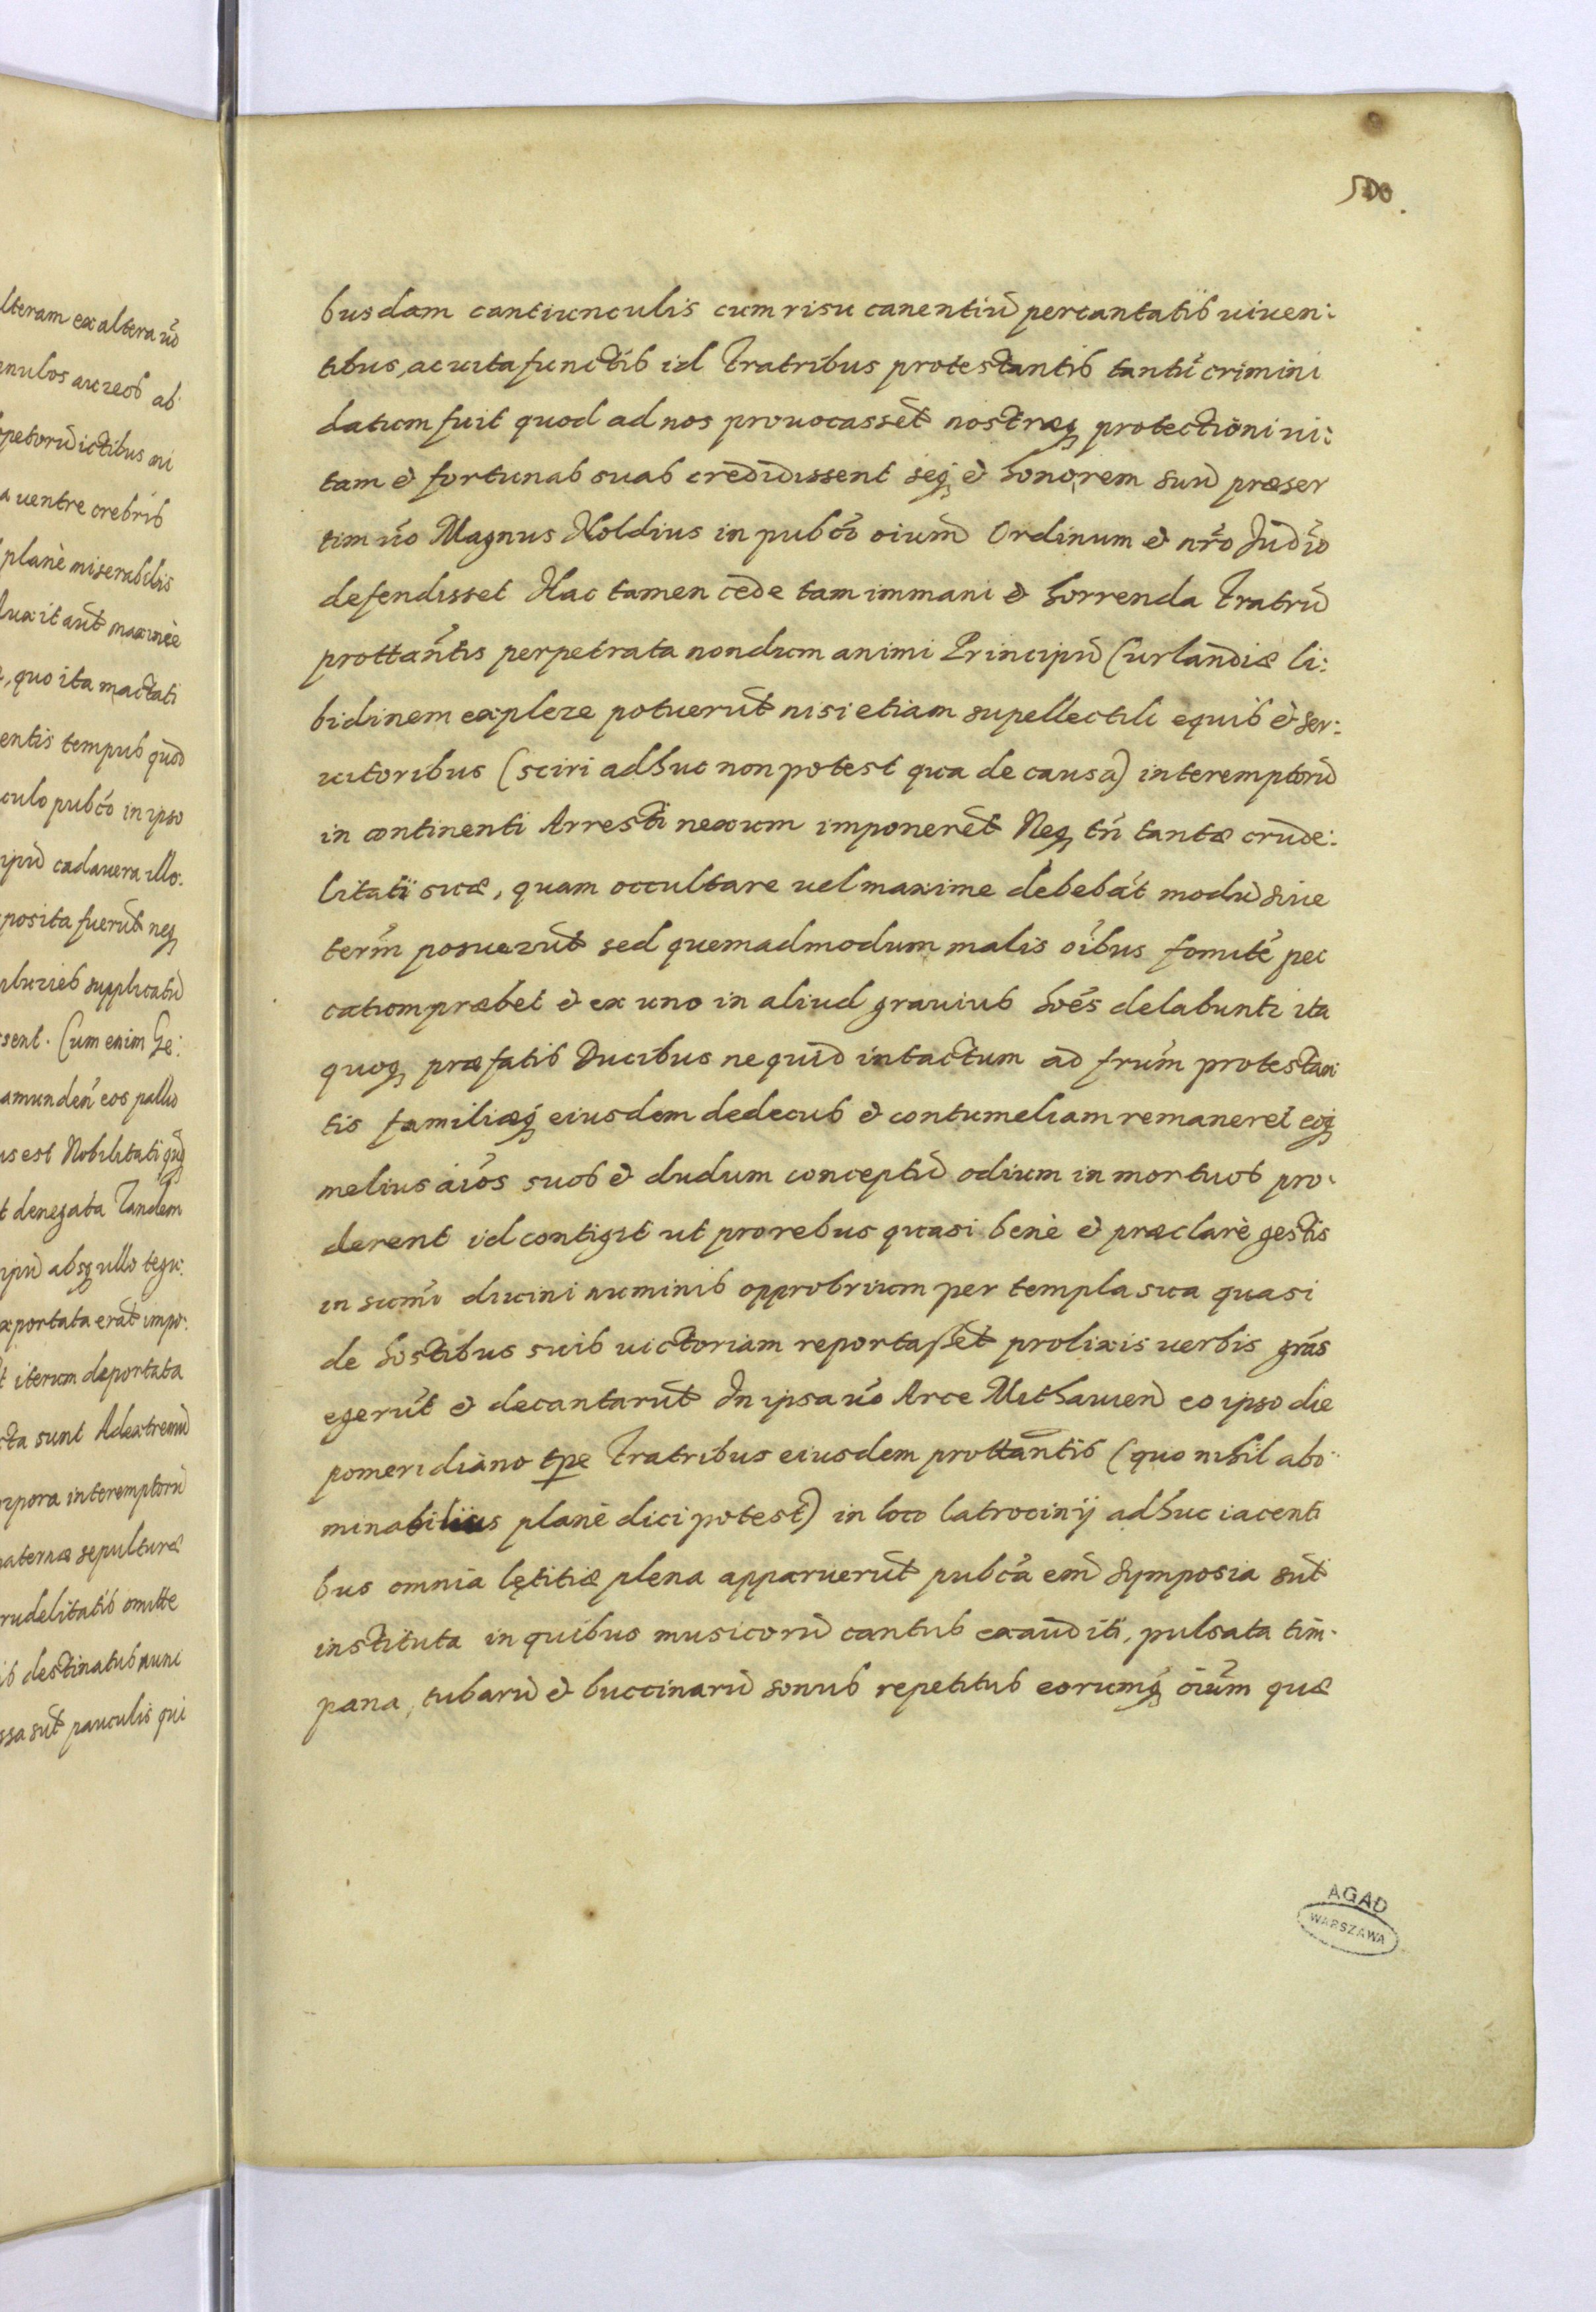 lteram ex altera uō
anulos aureos ab
opetorū ictibus mi
a uentre crebris
planè miserabilis
luxit aūt maximè
, quo ita mactati
entis tempus quōd
culo pubco in ipso
ipū cadauera illo:
posita fuerūt neq
pluries supplicatū
sent. Cum enim Ge:
amunden eos pallio
us est Nobilitati qūq
t denegata Tandem
ipū absq ullo tegu:
xportata erāt impo:
t iterum deportata
cta sunt Ad extremū
orpora interemptorū
aternæ sepulturæ
rudelitatis omitte
is destinatus nunc
ssa sūt pauculis qui
500.
bus dam cantiunculis cum risu canentiū percantatis uiuen:
tibus, ac uita functis id Fratribus protestantis tantū crimini
datum fuit quod ad nos prouocassēt nostræq protectioni ui:
tam & fortunas suas credidissent seq & honorem suū præser
tim uō Magnus Noldius in pubco oium Ordinum & nro Judio
defendisset Hac tamen cede tam immani & horrenda Fratrū
prottantis perpetrata nondum animi Principū Curlandiæ li:
bidinem explere potuerūt nisi etiam supellectili equis & ser:
uitoribus (sciri adhuc non potest qua de causa) interemptorū
in continenti Arresti nexum imponerēt Neq tn tantæ crude:
litati suæ, quam occultare uel maxime debebāt modū siue
term posuerūt sed quemadmodum malis oibus fomitē pec
catum præbet & ex uno in aliud grauius hoēs delabuntr ita
quoq præfatis Ducibus ne quid intactum ad frum protestan
tis familiæq eiusdem dedecus & contumeliam remaneret eoq
melius aios suos & dudum conceptū odium in mortuos pro:
derent id contigit ut pro rebus quasi benè & præclarè gestis
in sumi diuini numinis opprobrium per templa sua quasi
de hostibus suis uictoriam reportassēt prolixis uerbis grās
egerūt & decantarūt In ipsa uō Arce Mithauien eo ipso die
pomeridiano tpe Fratribus eiusdem prottantis (quo nihil abo
minabilius planè dici potest) in loco latrocinij adhuc iacenti
bus omnia lętitiæ plena apparuerūt pubca em Symposia sūt
instituta in quibus musicorū cantus exauditi, pulsata tim:
pana, tubarū & buccinarū sonus repetitus eorumq oium quæ
AGAD
WARSZAWA